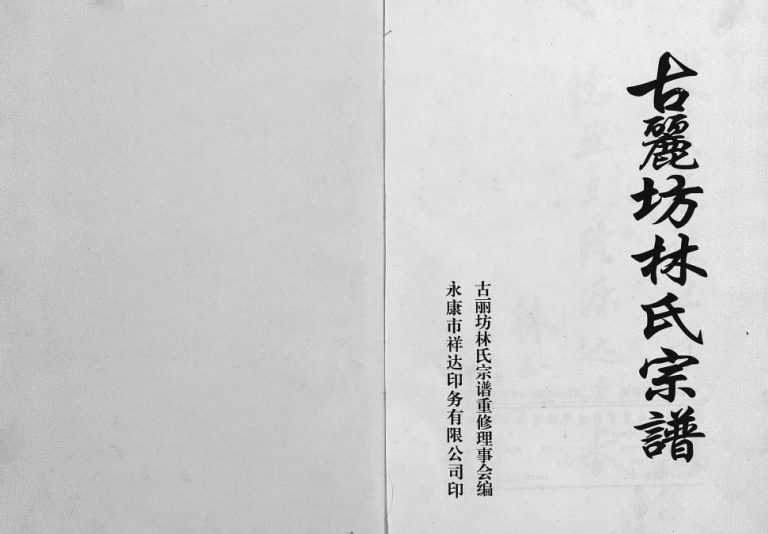 古麗坊林氏宗譜
古丽坊林氏宗谱重修理事会编
永康市祥达印务有限公司印